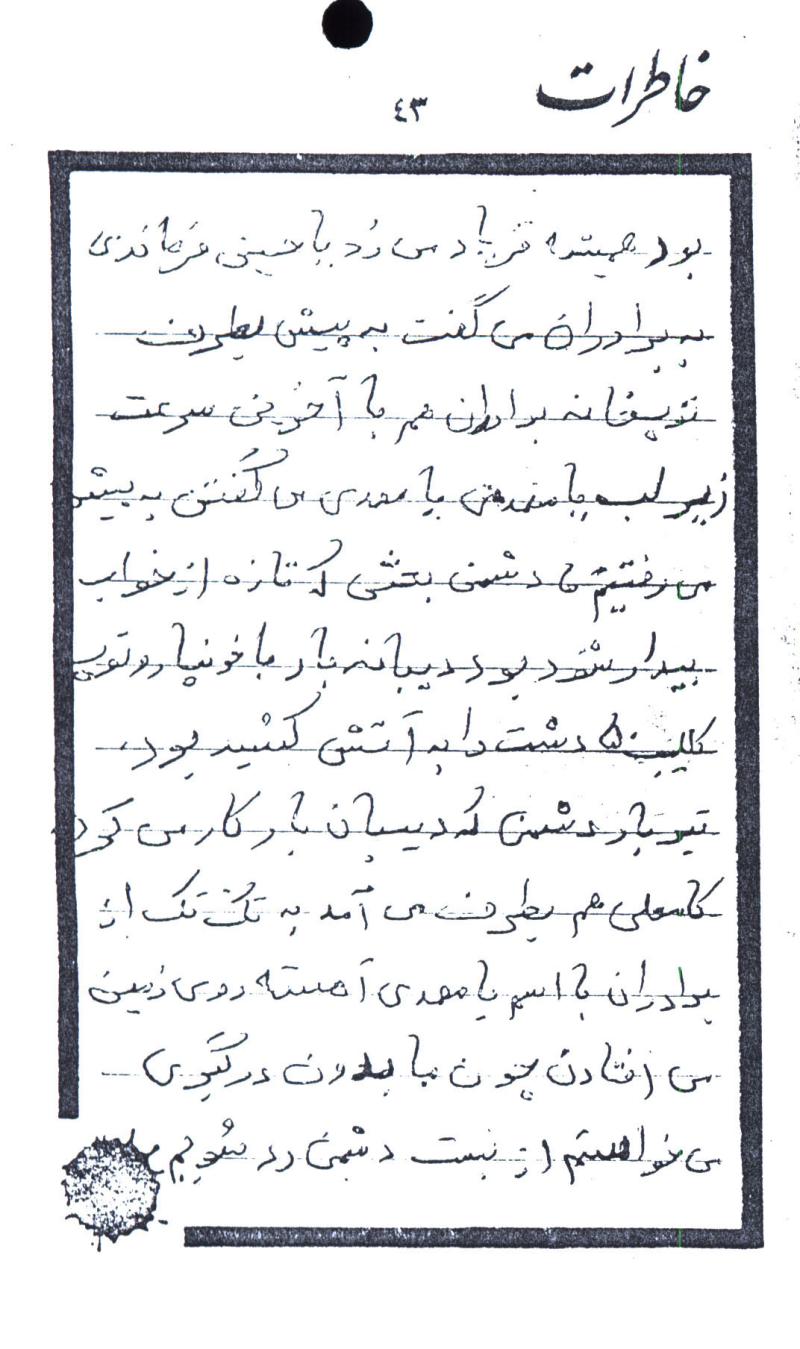 خاطرات
٤٣
بود همیشه فریاد می زد یا حسینی فرماندی
به برادران می گفت به پیش بطرف
توپخانه برادران هم با آخرین سرعت
زیر لب یا مهدی یا مهدی می گفتن به پیش
می رفتیم دشمن بعثی که تازه از خواب
بیدار شود بود دیبانه بار با خونپاره توپ
کالیبر ۵۰ دشت را به آتش کشید بود،
تیر بار دشمن که دیسبان بار کار می کرد
کاملی هم بطرف می آمد به تک تک از
برادران با اسم یا مهدی آهسته روی زمین
می افتادن چون ما بدون درگیری
می خواستم از نبست دشمن رد شویم